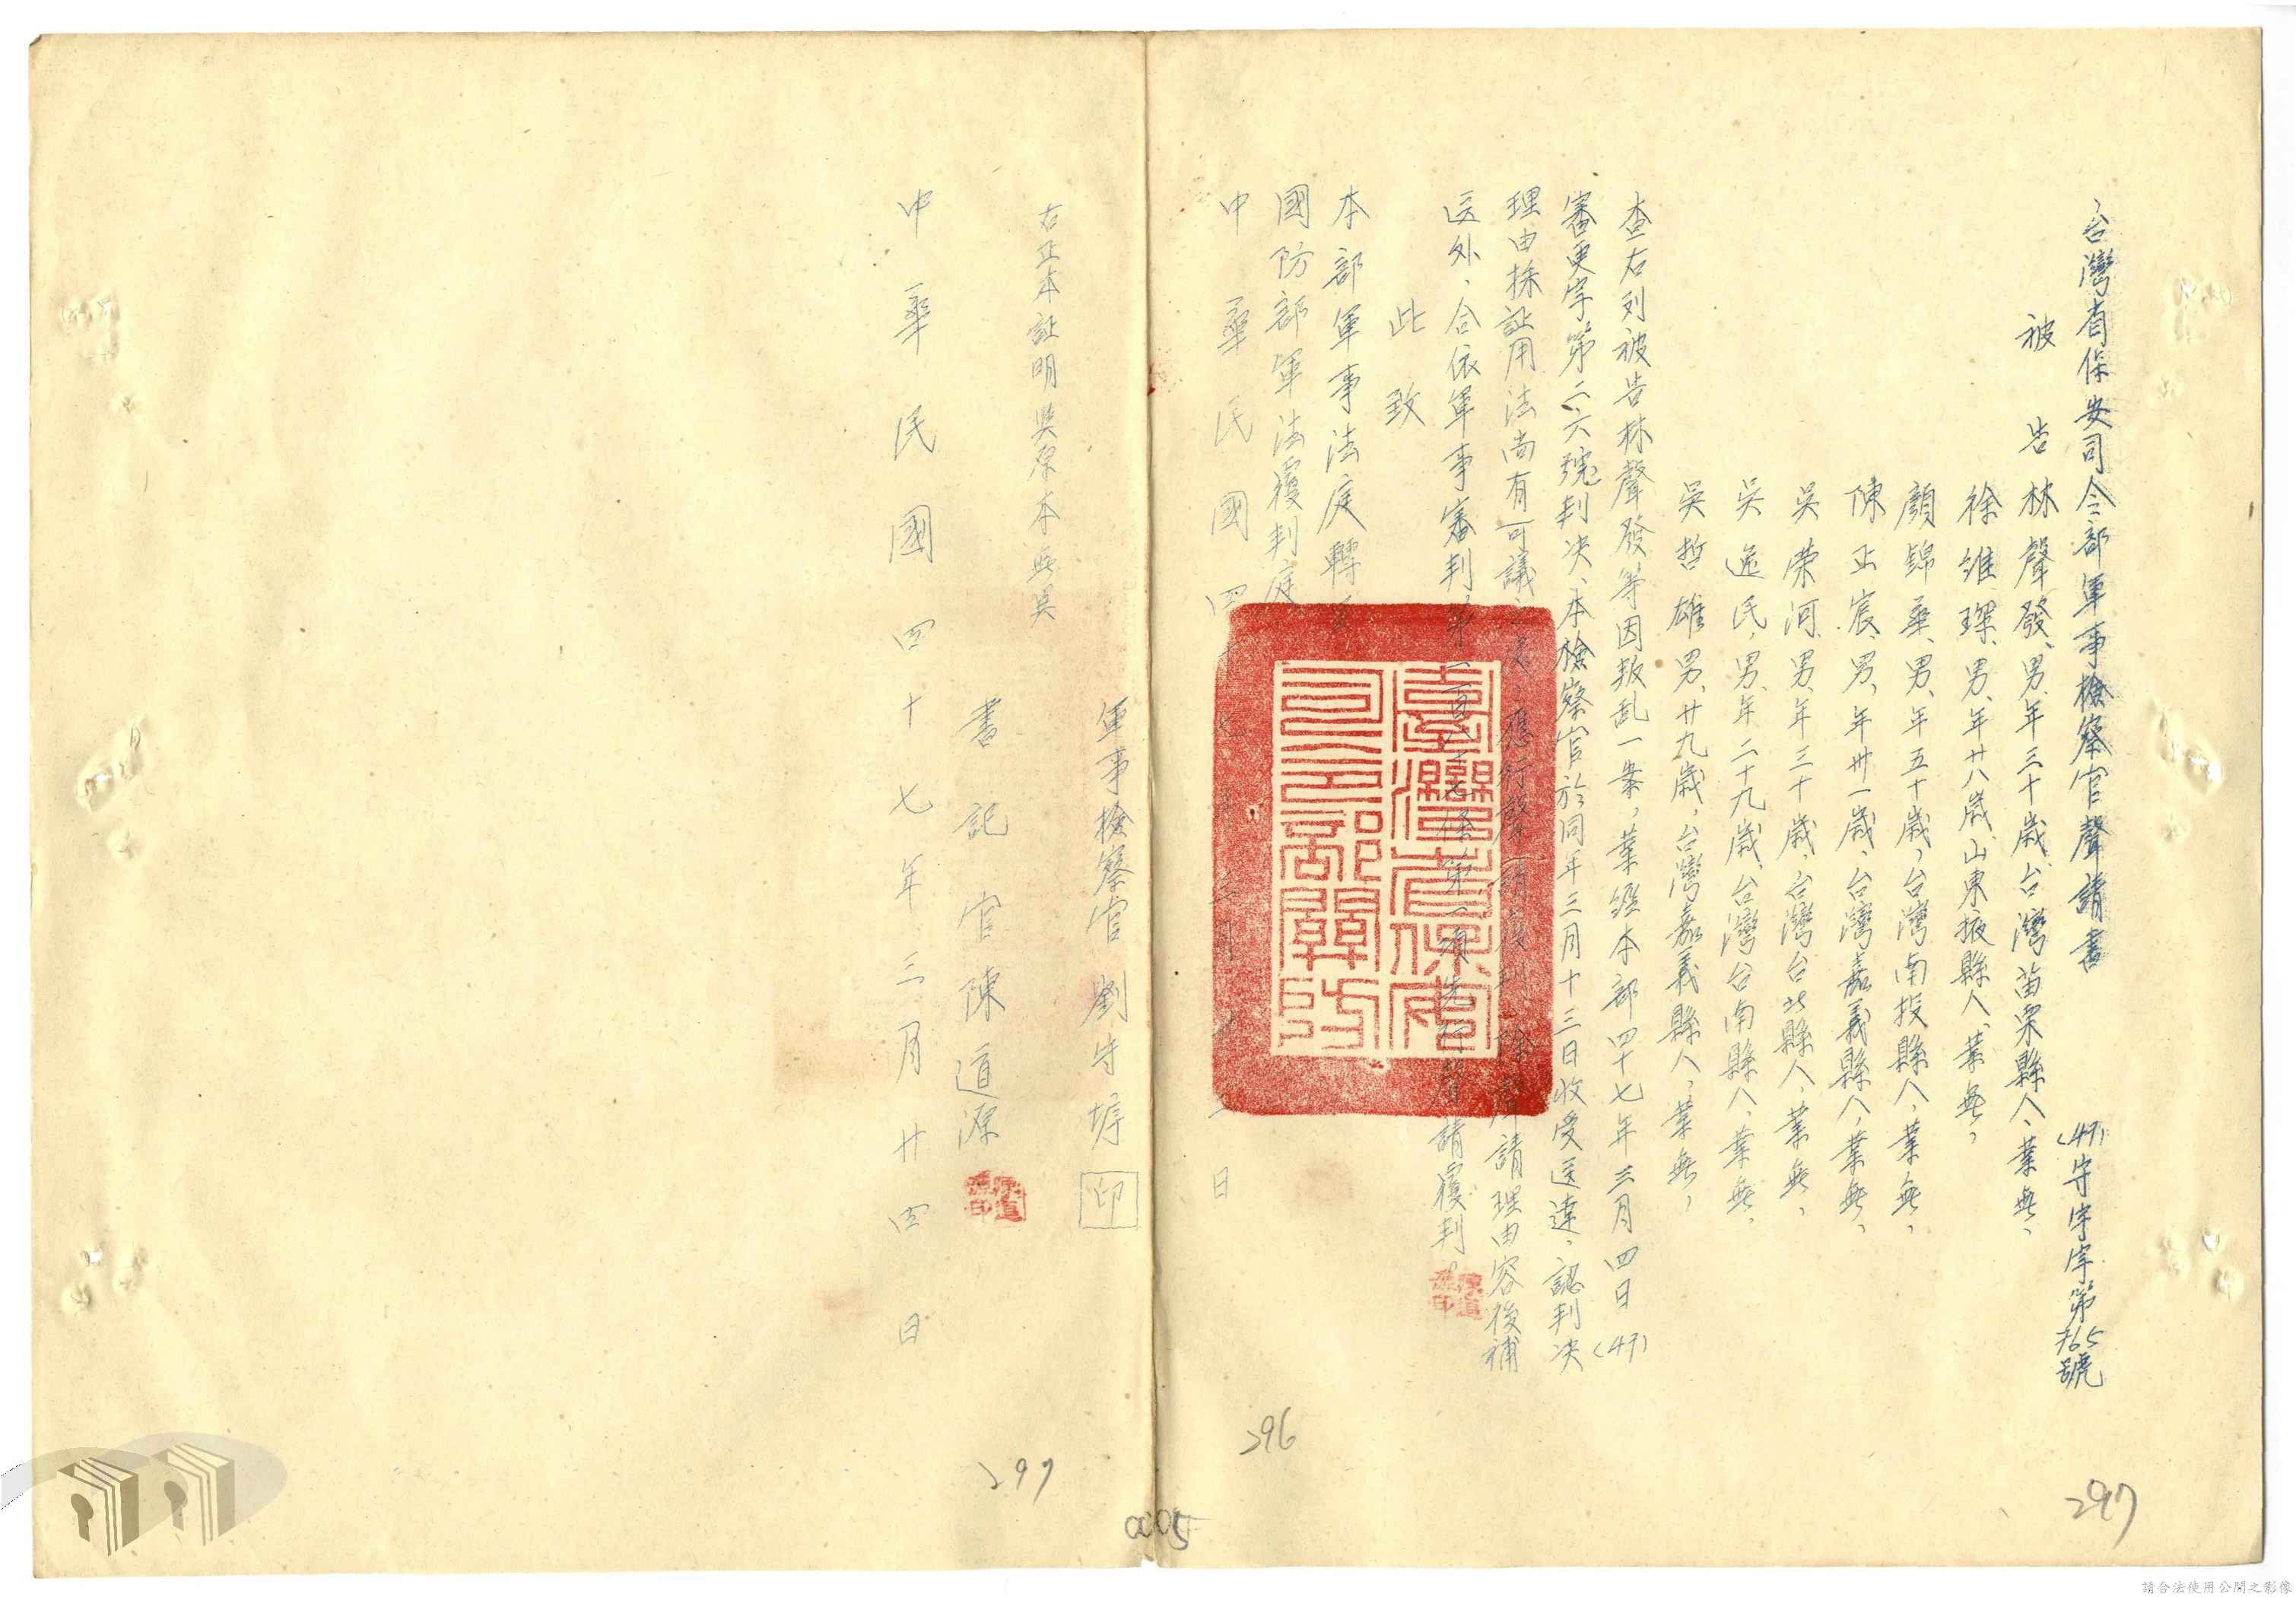 台灣省保安司令部軍事檢察官聲請書
(47)守字第765號
被告 林聲發、男、年三十歲、台灣苗栗縣人、業無、
徐維琛、男、年廿八歲、山東掖縣人、業無、
顏錦華、男、年五十歲、台灣南投縣人、業無、
陳正宸、男、年卅一歲、台灣嘉義縣人、業無、
吳榮河、男、年三十歲、台灣台北縣人、業無、
吳逸民、男、年二十九歲、台灣台南縣人、業無、
吳哲雄 男、廿九歲、台灣嘉義縣人、業無、
查右列被告林聲發等因叛乱一案,業經本部四十七年三月四日(47)
審更字第二六號判决、本檢察官於同年三月十三日收受送達,認判决
理由採証用法尚有可議之處,應行聲請覆判、除聲請理由容後補
送外、合依軍事審判第一百八十七條第一項先行聲請覆判。
此致
本部軍事法庭轉
國防部軍法覆判庭
中華民國四十七年三月十 日
軍事檢察官 劉守 印
右正本証明與原本無異
書記官陳道源
陳道源印
中華民國四十七年三月廿四日
臺灣省保安司令部關防
陳道源印
296
297
297
0005
請合法使用公開之影像